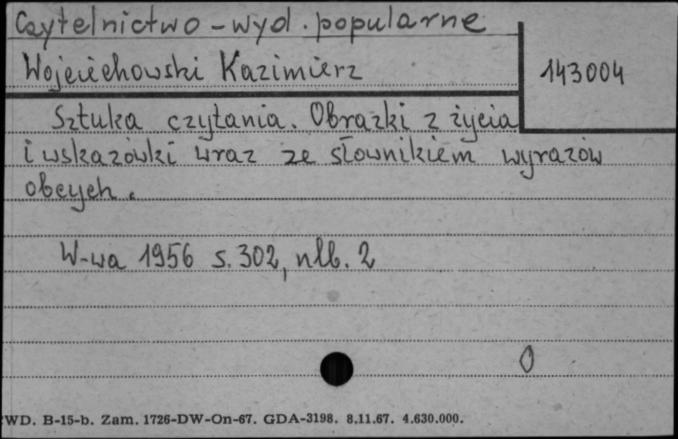 Czytelnictwo - wyd. popularne
Wojciechowski Kazimierz
143004
Sztuka czytania. Obrazki z życia
i wskazówki wraz ze słownikiem wyrazów
obcych.
W-wa 1956 s. 302, nlb. 2
0
WD. B-15-b. Zam. 1726-DW-On-67. GDA-3198. 8.11.67. 4.630.000.